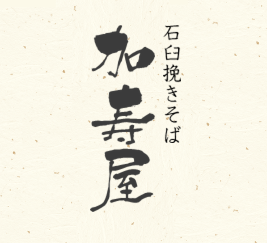 石臼挽きそば
加寿屋